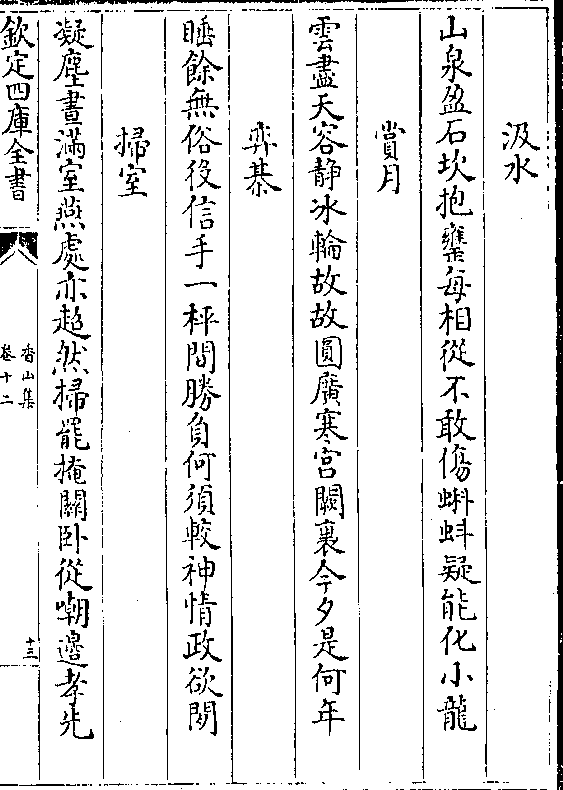 汲水
山泉盈石坎抱甕每相從不敢傷蝌蚪疑能化小龍
賞月
雲盡天容静冰輪故故圓廣寒宫闕裏今夕是何年
弈棊
睡餘無俗役信手一枰間勝負何須較神情政欲閒
掃室
凝塵晝滿室燕處亦超然掃罷掩關卧從嘲邉孝先
欽定四庫全書
香山集
卷十二
十三